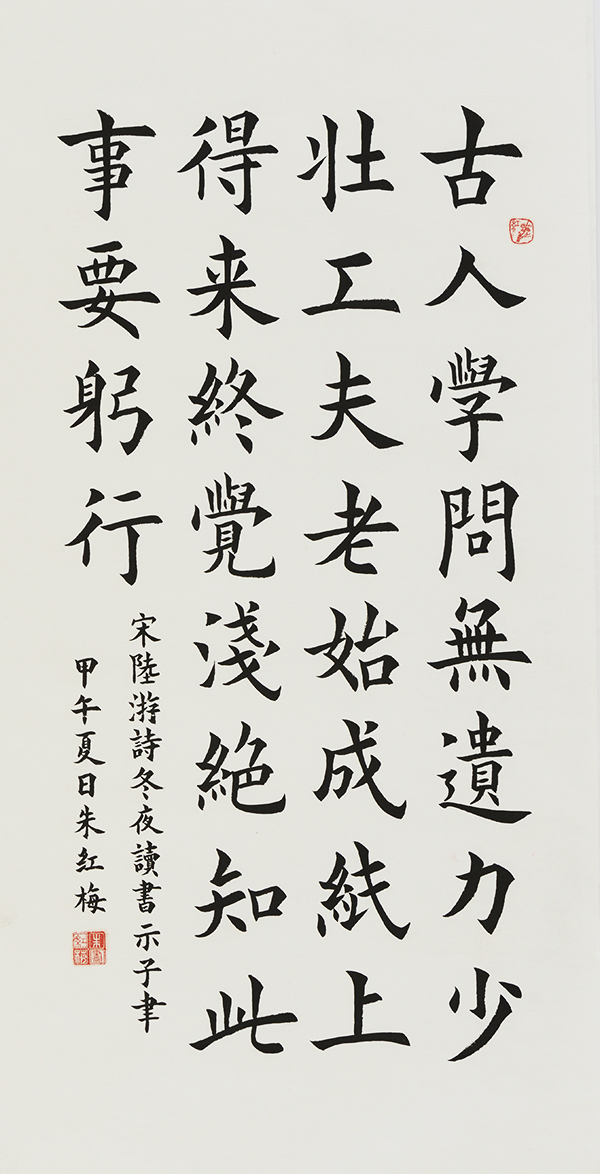 古人學問無遺力少
壮工夫老始成紙上
得来終覺淺絶知此
事要躬行
宋陸游詩冬夜讀書示子聿
甲午夏日朱红梅